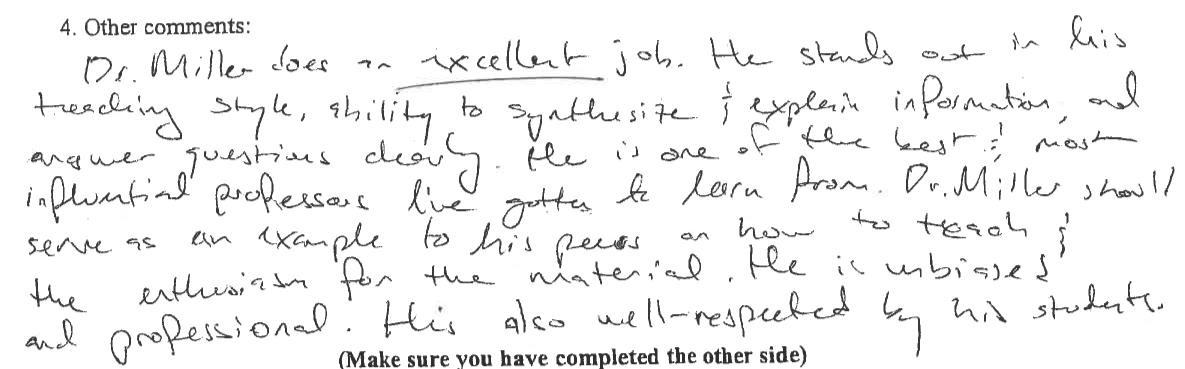 4. Other comments:
Dr. Miller does an excellent job. He stands out in his
teaching style, ability to synthesize & explain information, and
answer questions clearly. He is one of the best & most
influential professors I've gotten to learn from. Dr. Miller should
serve as an example to his peers on how to teach &
the enthusiasm for the material. He is unbiased
and professional. His also well-respected by his students.
(Make sure you have completed the other side)